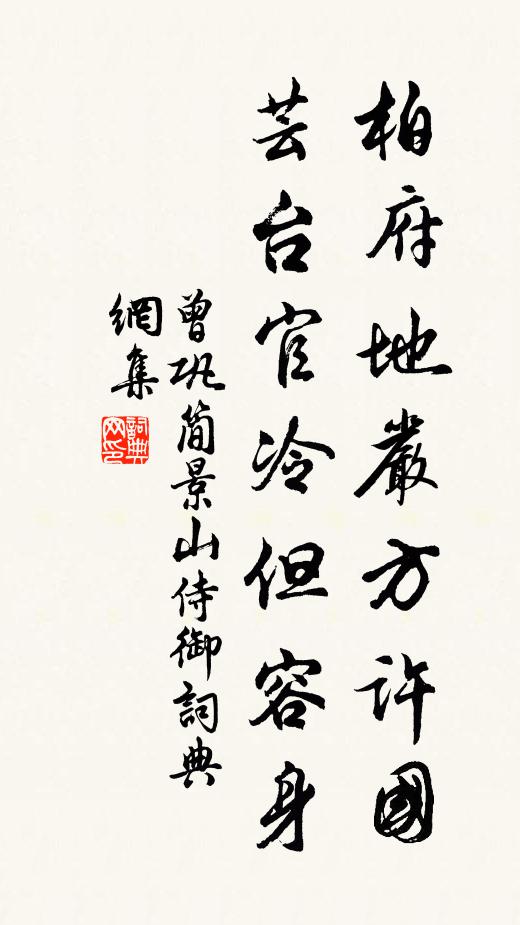 柏府地嚴方許國
芸台官冷但容身
曾巩简景山侍御詞典
網集
詞典网印